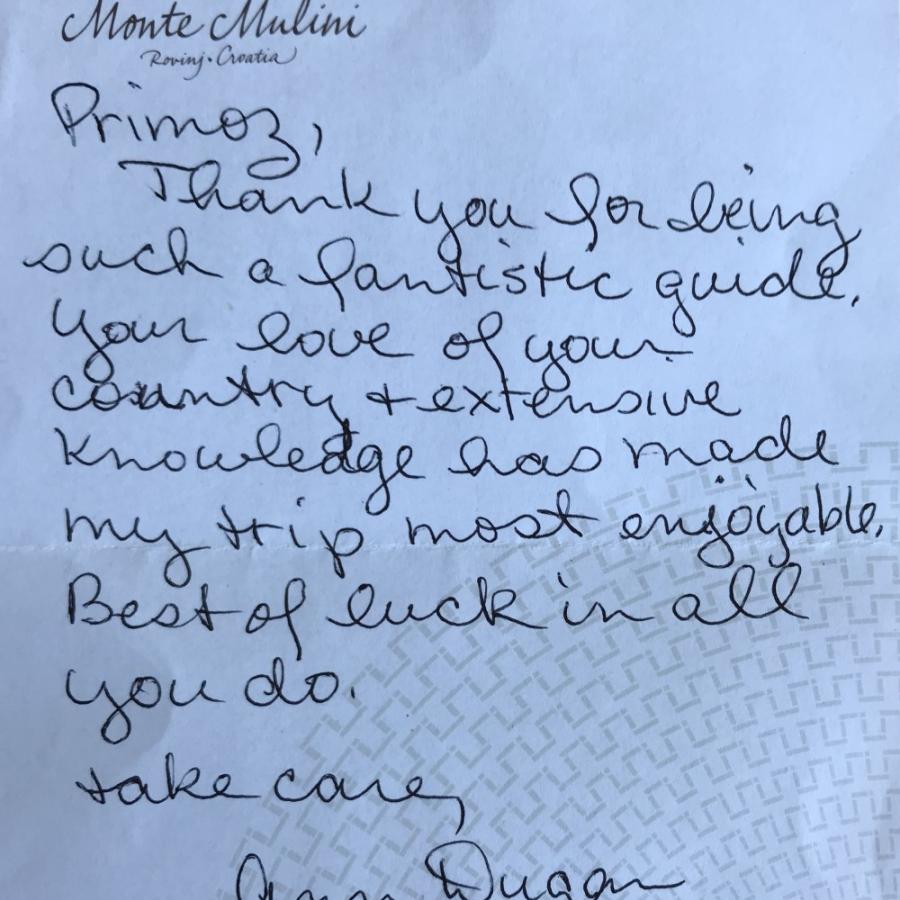 Monte Mulini
Rovinj · Croatia
Primoz,
Thank you for being
such a fantistic guide.
Your love of your
country + extensive
knowledge has made
my trip most enjoyable.
Best of luck in all
you do.
take care,
Ann Dugan